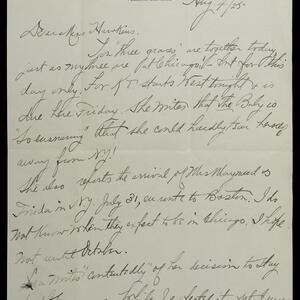 Aug 4/25.
Dear Mrs Hawkins.
The three graces, are together today
just as my three are at Chicago! but for this
day only. For K T starts West tonight & is
due there Friday. She writes that the Baby is
so " that she could hardly tear herself
away from NY!
She also reports the arrival of Mrs Maynard as
Friday in N.Y. July 31, en route to Boston. I do
not know when they expect to be in Chicago, I hope
not until October.
writes "contentedly" of her decision to stay